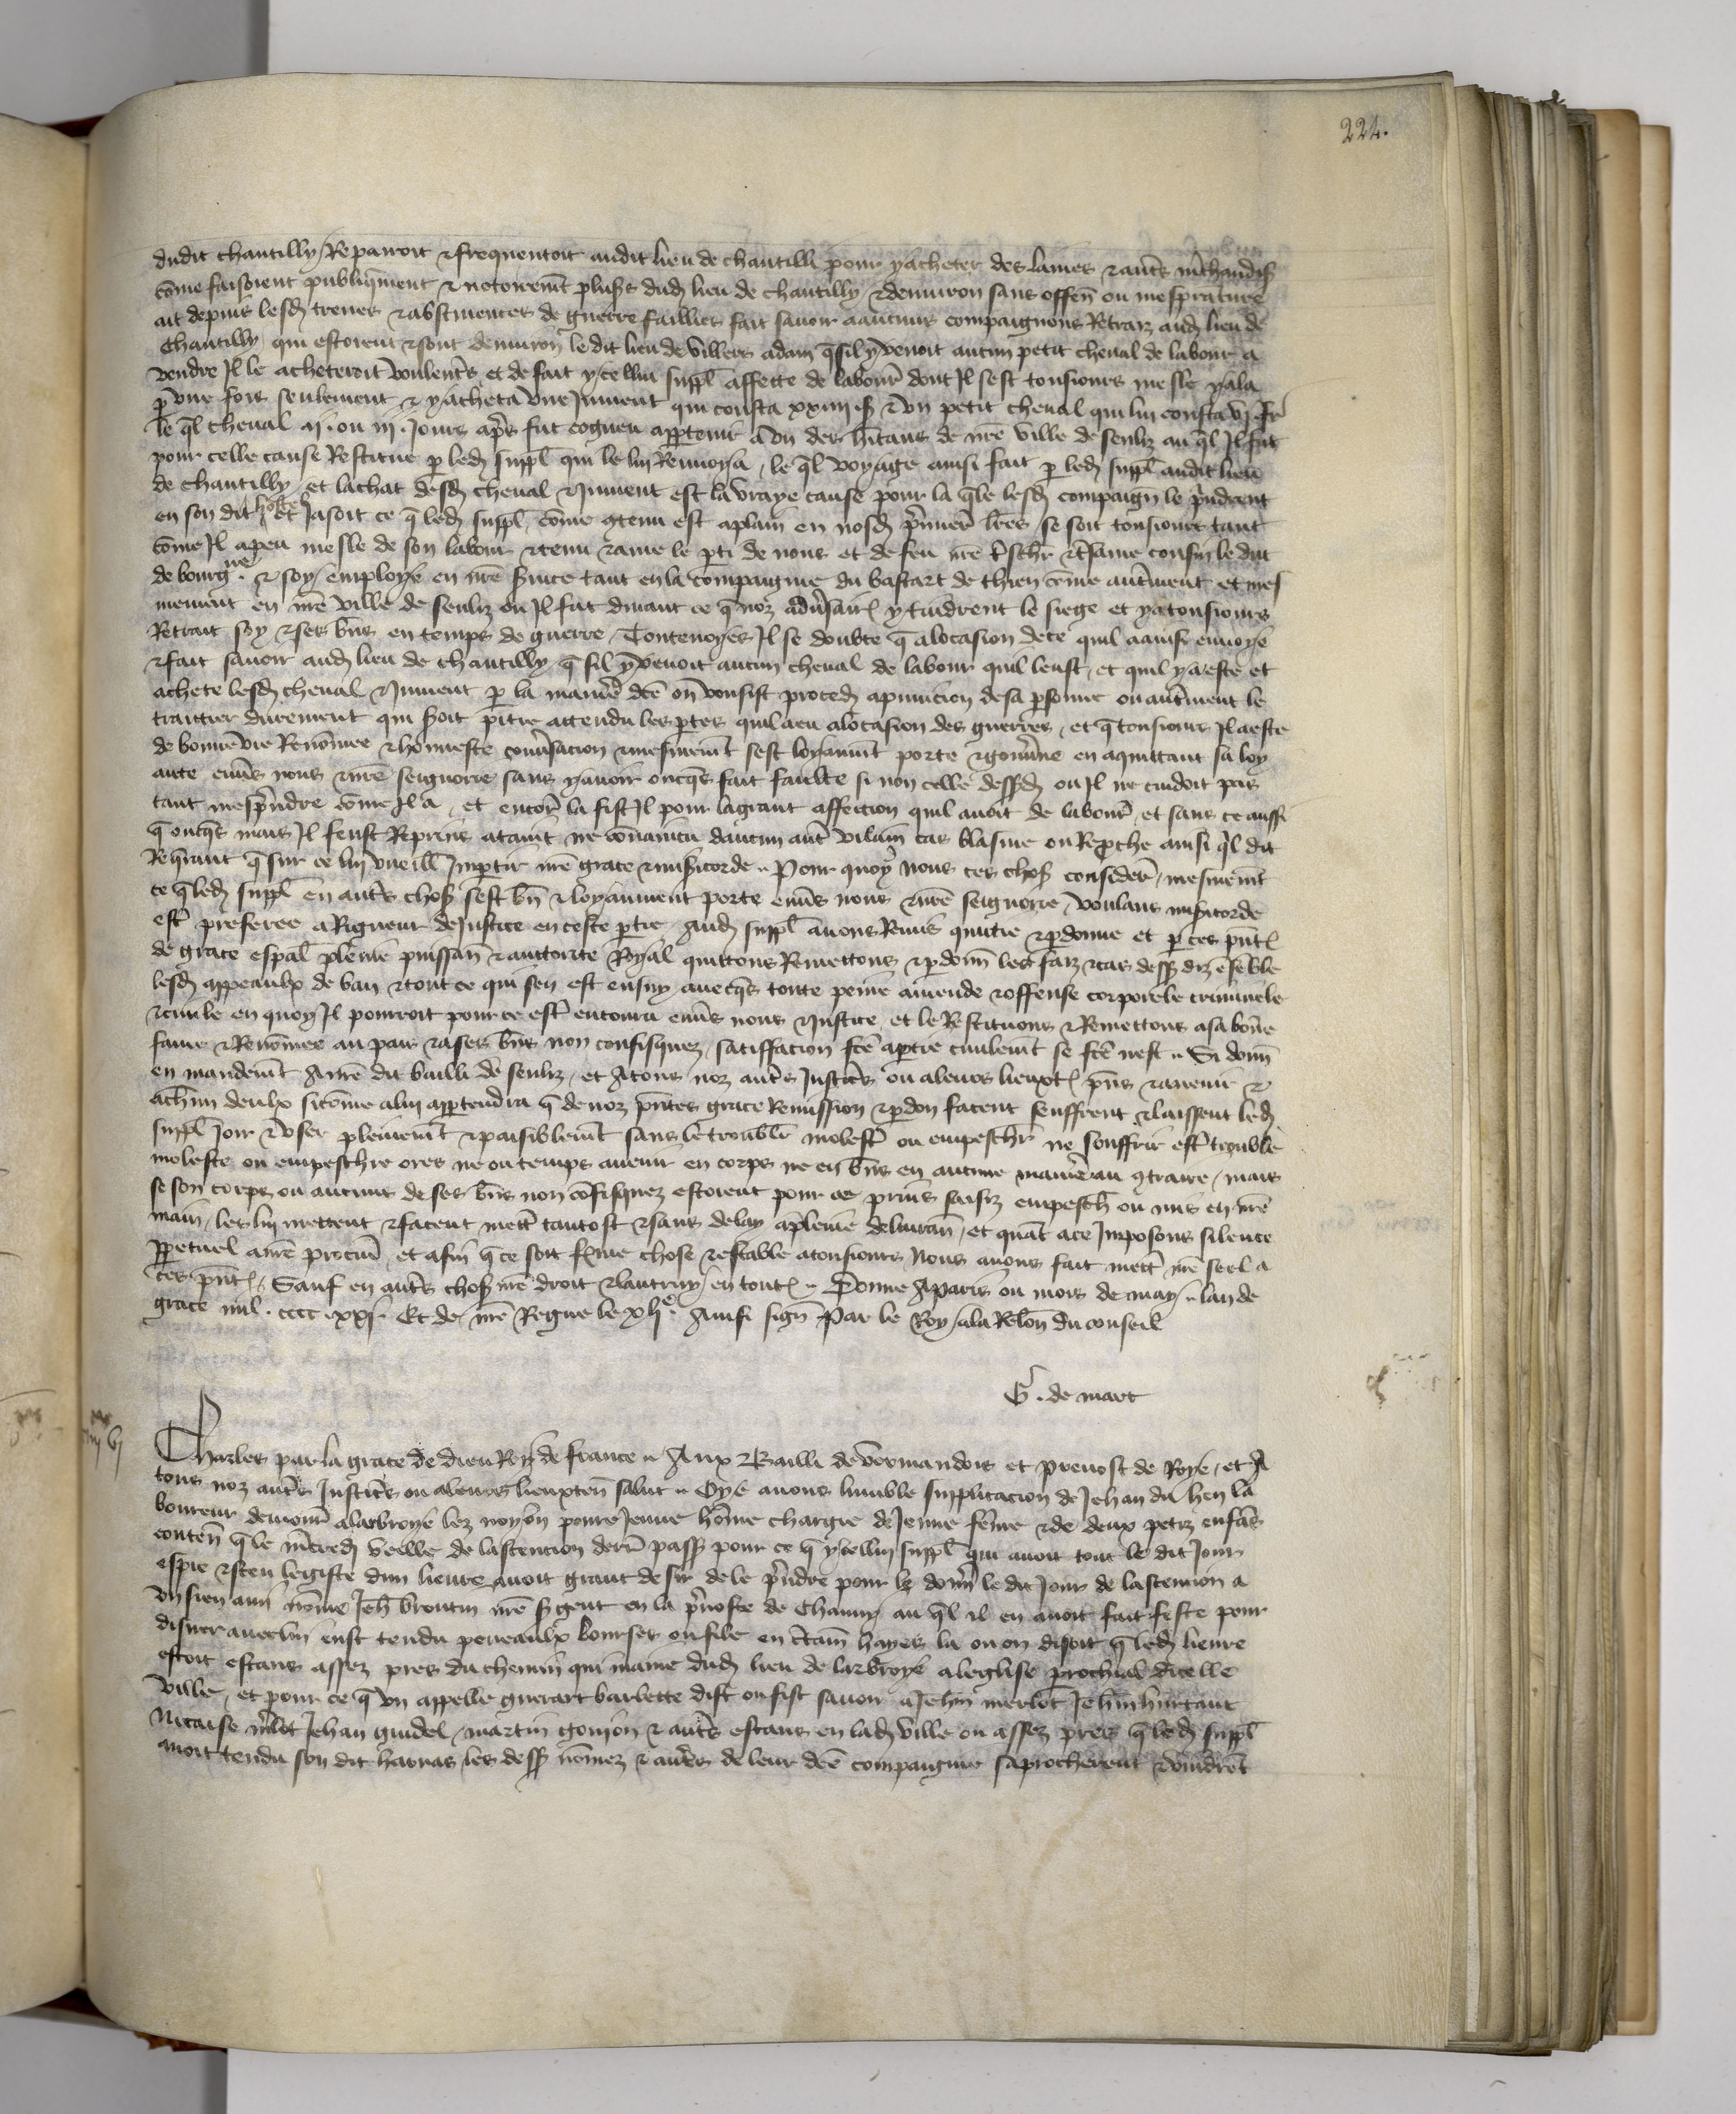 224.
dudit chantilly / Repairoit & frequentoit audit lieu de chantilli pour y acheter des laines & autrs mrchandiss
cōme faisoient publiqmēnt & notoiremt plussrs dud lieu de chantilly & denuiron sans offenr ou mesprature
ait depuis lesd treues & abstinences de guerre faillies fait sauoir a aucuns compaignons Retraiz aud lieu de
Chantilly qui estoient & sont denuiron le dit lieu de villers adam q sil y venoit aucun petit cheual de labour a
vendre Il le acheteroit voulentrs et de fait ycellui suppl affecte de labourr dont Il sest tousiours mesle y ala
p vne fois seulement & y acheta vne Jument qui cousta xxiiij s & vn petit cheual qui lui cousta vj fr
le ql cheual ij. ou iij. Jours aprs fut cogneu appertenir a vn des hitans de nre ville de senliz au ql Il fut
pour celle cause Restitue p led suppl qui le lui Renuoya / le ql voyage ainsi fait p led suppl audit lieu
de chantilly / et lachat desd cheual & Jument est la vraye cause pour la qle lesd compaign le prindrent
en son dit hostel et Jasoit ce q led suppl cōme contenu est a plain en nosd prmieres lres se soit tousiours tant
cōme Il a peu mesle de son labour & tenu & ame le pti de nous et de feu nre trescher & tresame cousin le duc
de bourgne & soy employe en nre sruice tant en la compaignie du bastart de thien cōme autrement et mes
mement en nre ville de senliz ou Il fut durant ce q noz aduersairs y tindrent le siege et y a tousiours
Retrait soy & ses biens en temps de guerre / Toutenoyes Il se doubte q a locasion de ce quil a ainsi enuoye
& fait sauoir aud lieu de chantilly q sil y venoit aucun cheual de labour quil leust / et quil y a este et
achete lesd cheual & Jument p la manire dce on vousist procedr a punicion de sa psonne ou autrement le
traictier durement qui seroit pitie attendu les ptes quil a eu a locasion des guerres / et q tousiours Il a este
de bonne vie Renōmee & honneste conuersacion & mesmemt sest loyaumt porte & gouuerne en aquittant sa loy
aute enurs nous & nre seigneurie sans y auoir oncqs fait faulte si non celle dessusd ou Il ne cuidoit pas
tant mesprndre cōme Il a / et encorr la fist Il pour la grant affection quil auoit de labourr / et sans ce aussi
q oncqs mais Il feust Reprins ataint ne conuaincu daucun autr vilain cas blasme ou Reproche ainsi ql dit
Requerant q sur ce lui vueill Impartir nre grace & misericorde " Pour quoy nous ces choss considerr / mesmemt
ce q led suppl en autrs choss sest bn & loyaument porte enurs nous & nre seigneurie / voulans misericorde
estr preferee a Rigueur de Justice en ceste ptie Aud suppl auons Remis quictie & pdonne et p ces prntes
de grace espal pleniere puissanr & auctorite Royal quittons Remettons & pdonnr les faiz & cas dess diz ensemble
lesd appeaulx de ban & tout ce qui sen est ensuy auecqs toute peine amende & offense corporele criminele
& ciuile en quoy Il pourroit pour ce estr encouru enurs nous & Justice / et le Restituons & Remettons a sa bonne
fame & Renōmee au pais & a ses bns non confisquez / satisfacion fce a partie ciuilemt se fce nest " Si donnr
en mandemt A nre dit bailli de senliz / et A tous noz autrs Justicrs ou a leurs lieuxtes prns & auenir &
a chun deulx sicōme a lui apptendra q de noz prntes grace Remission & pdon facent seuffrent & laissent led
suppl Joir & vser plenemt & paisiblemt sans le troubler molestr ou empeschr ne souffrir estr trouble
moleste ou empeschie ores ne ou temps auenir en corps ne en bns en aucune manire au contraire / mais
se son corps ou aucuns de ses bns non cōfisquez estoient pour ce prins saisiz empesch ou mis en nre
main / les lui mettent & facent mettr tantost & sans delay a pleniere deliuranr / et quāt a ce Imposons silence
ppetuel a nre procur / et afin q ce soit frme chose & estable a tousiours Nous auons fait mettr nre seel a
ces prnts Sauf en autrs choss nre droit & lautruy en toutes " Donne A paris ou mois de may " lan de
grace mil. cccc. xxj. Et de nre Regne le xlje. Ainsi signe Par le Roy / a la Relon du conseil
G. de mart
Charles par la grace de dieu Roy de france " Aux Bailli de vermandois et preuost de Roye / et A
tous noz autrs Justicrs ou a leurs lieuxten salut " Oye auons lumble supplicacion de Jehan du hen la
boureur demourr a larbroye lez noyon poure Jeune hōme chargie de Jeune fēme & de deux petiz enfās
contenr q le mrcredi veille de lascencion derr passr pour ce q ycellui suppl qui auoit tout le dit Jour
espie & sceu le giste dun lieure auoit grant desir de le prndre pour le donnr le dit Jour de lascencion a
vn sien ami nōme Jeh broutin nre srgent en la preuoste de Chauny au ql il en auoit fait feste pour
disner auec lui eust tendu peneaulx bourses ou file en crtain hayes la ou on disoit q led lieure
estoit estans assez pres du chemin qui maine dud lieu de larbroye a leglise prochial dicelle
ville / et pour ce q vn appelle guerart barbette dist ou fist sauoir a Jehn merlot Jehn hurtaut
Nicaise mrlot Jehan guidel / martin goujon & autrs estans en lad ville ou assez pres q led suppl
auoit tendu son dit harnas les dess nōmez & autrs de leur dce compaignie saprocherent & vindret